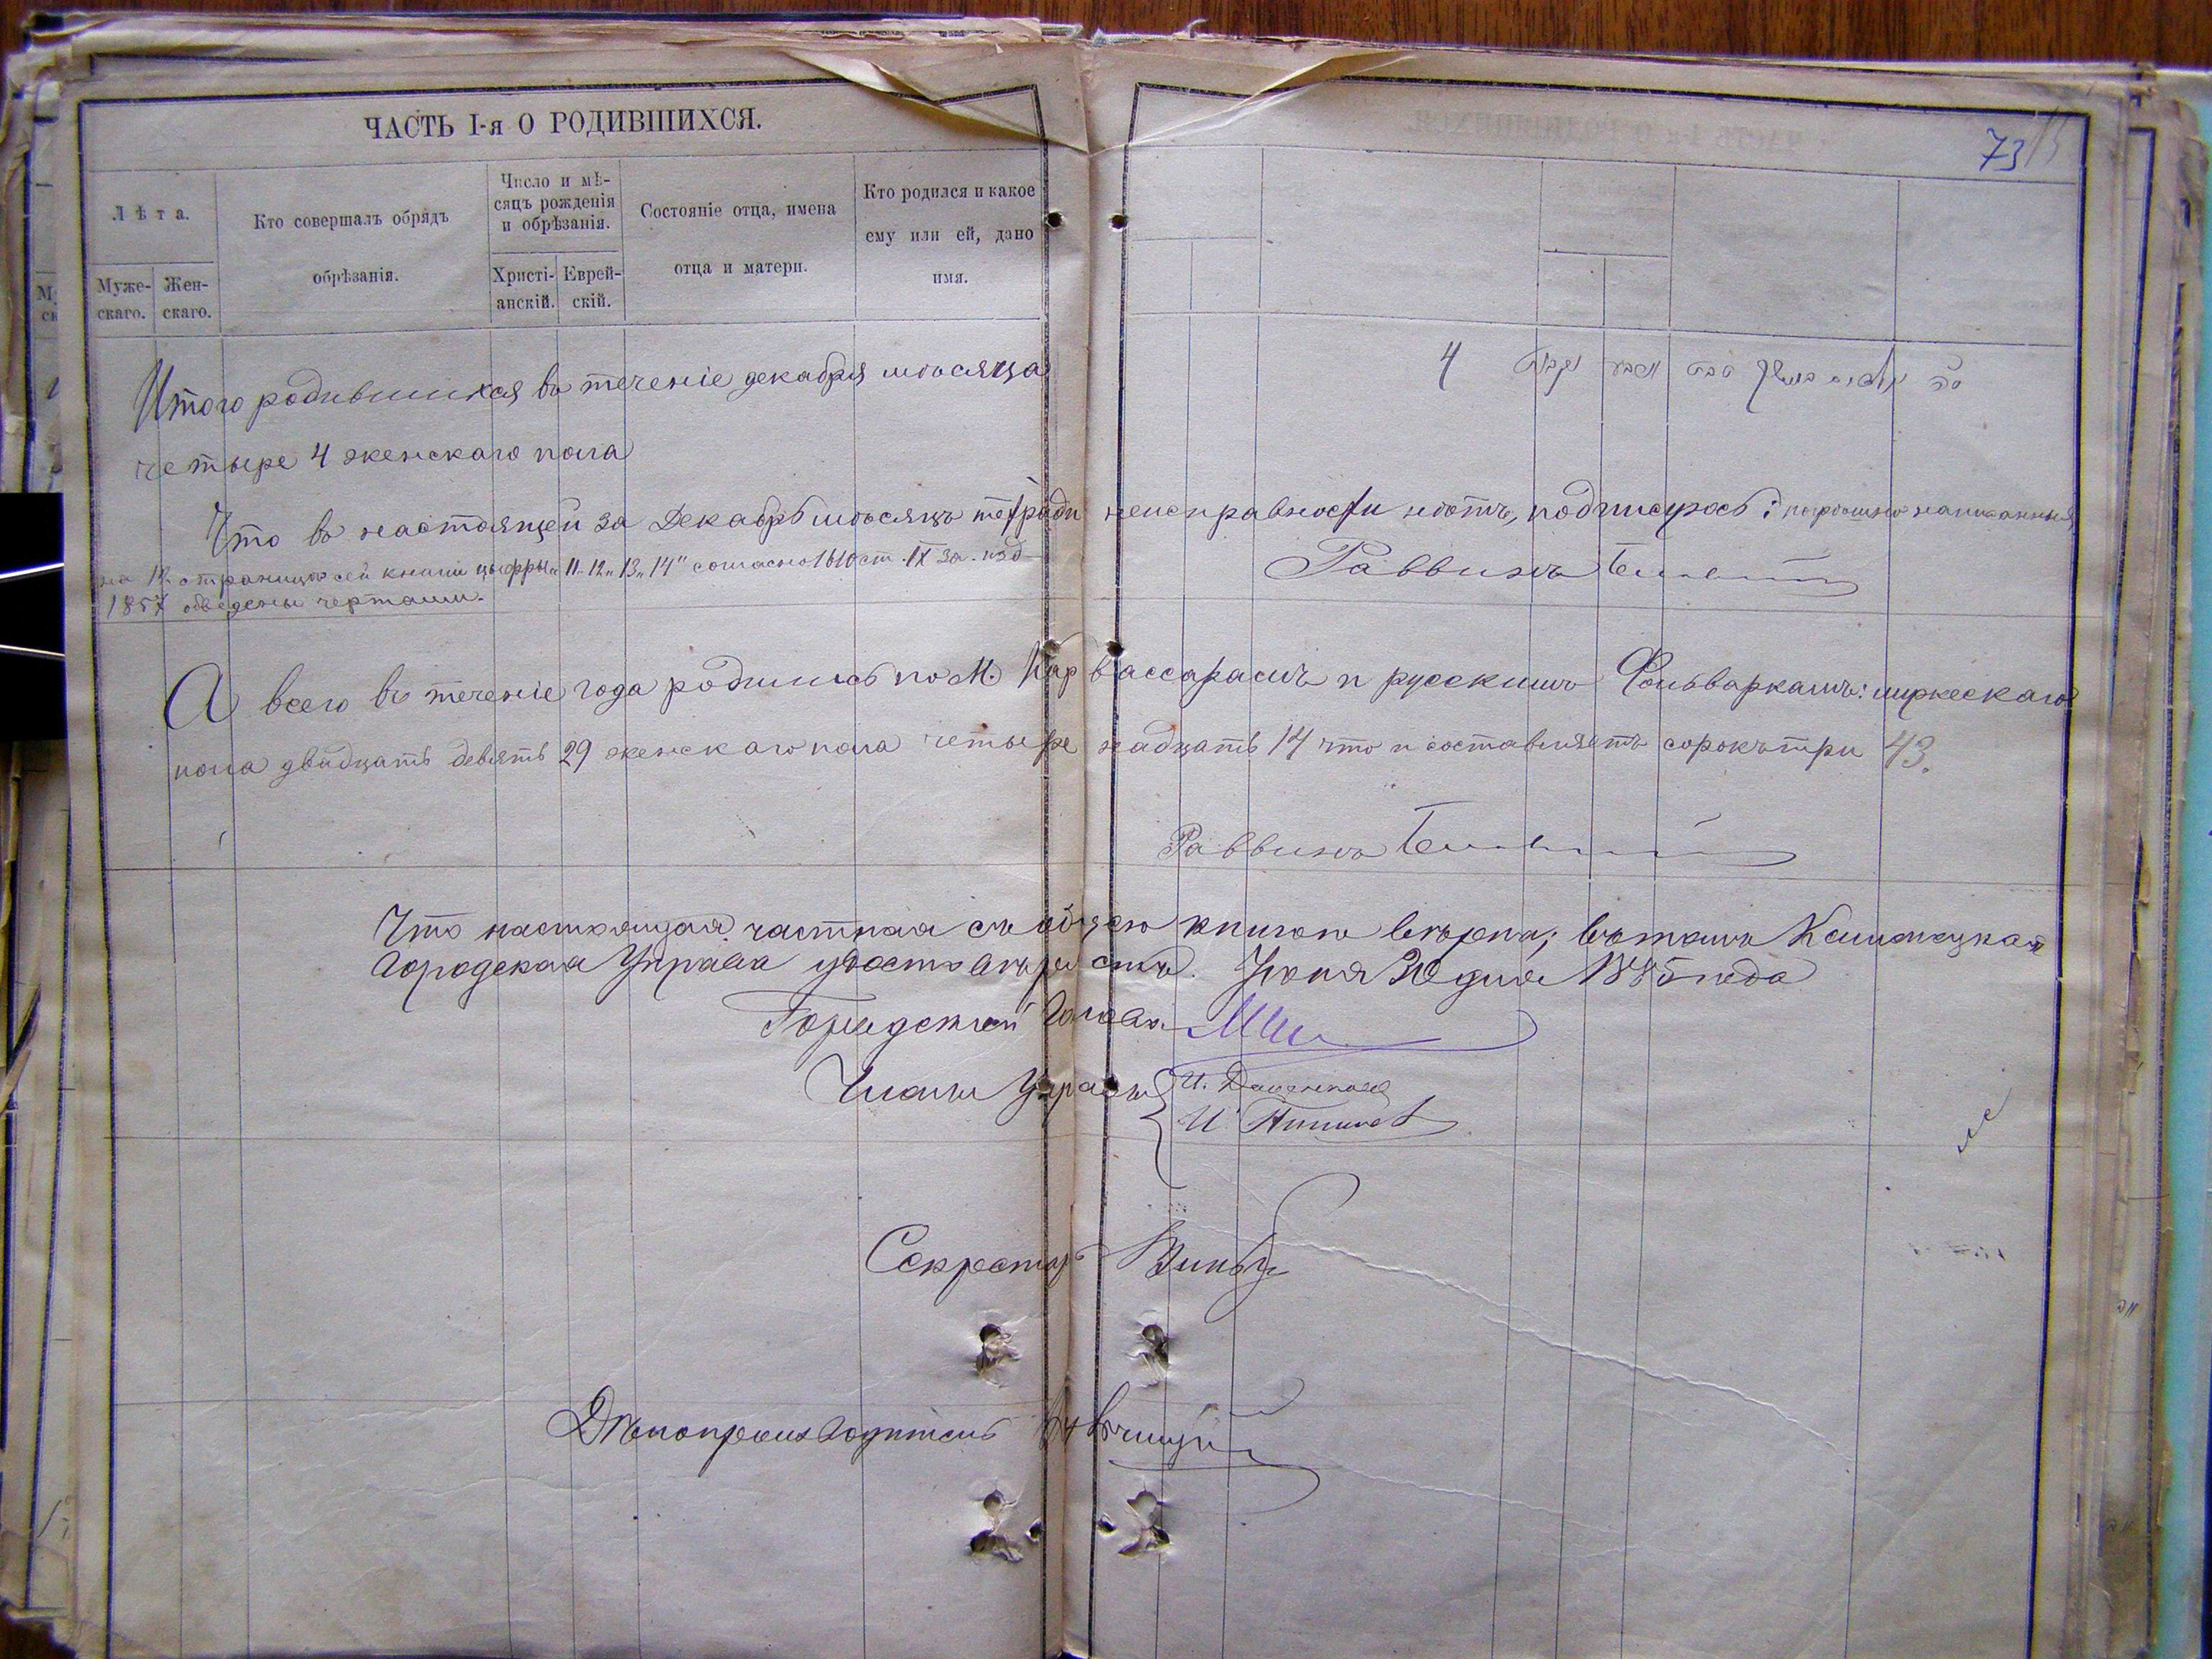 ЧАСТЬ I-я О РОДИВШИХСЯ.
73
Лѣта.
Муже-скаго.
Жен-скаго.
Кто совершалъ обрядъ обрѣзанія.
Число и мѣ-сяцъ рожденія и обрѣзанія.
Христі-анскій.
Еврей-скій.
Состояніе отца, имена отца и матери.
Кто родился и какое ему или ей, дано имя.
Итого родившихся въ теченіе декабря мѣсяца
четыре 4 женскаго пола
4
Что въ настоящей за Декабрь мѣсяцъ тетради неисправности нѣтъ, подписуюсь: погрѣшно написанныя
на 12 страницѣ сей книги цыфры „11„ 12„ 13„ 14" согласно 1610 ст. IX за. изд
1857 обведены чертами.
Раввинъ
А всего въ теченіе года родилось по М. Карвассарамъ и русскимъ Фольваркамъ: мужескаго
пола двадцать девять 29 женскаго пола четыре надцать 14 что и составляетъ сорокъ три 43.
Раввинъ
Что настоящая частная съ общею книгою вѣрна; въ томъ Каменецкая
Городская Управа удостовѣряетъ. Іюня 30 дня 1885 года
Городской Голова
Члены Управы
Секретарь
Дѣлопроизводитель